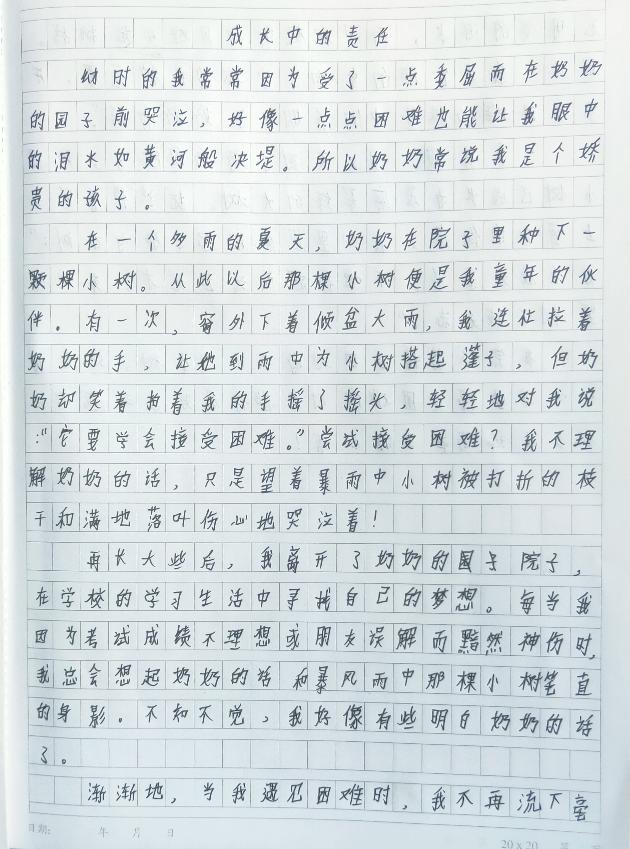 成长中的责任
幼时的我常常因为受了一点委屈而在奶奶
的园子前哭泣，好像一点点困难也能让我眼中
的泪水如黄河般决堤。所以奶奶常说我是个娇
贵的孩子。
在一个多雨的夏天，奶奶在院子里种下一
颗棵小树。从此以后那棵小树便是我童年的伙
伴。有一次，窗外下着倾盆大雨，我连忙拉着
奶奶的手，让她到雨中为小树搭起蓬子，但奶
奶却笑着拍着我的手摇了摇头，轻轻地对我说
："它要学会接受困难。"尝试接受困难？我不理
解奶奶的话，只是望着暴雨中小树被打折的枝
干和满地落叶伤心地哭泣着！
再长大些后，我离开了奶奶的园子院子，
在学校的学习生活中寻找自己的梦想。每当我
因为考试成绩不理想或朋友误解而黯然神伤时，
我总会想起奶奶的话和暴风雨中那棵小树笔直
的身影。不知不觉，我好像有些明白奶奶的话
了。
渐渐地，当我遇见困难时，我不再流下毫
日期： 年 月 日
20×20 第 页